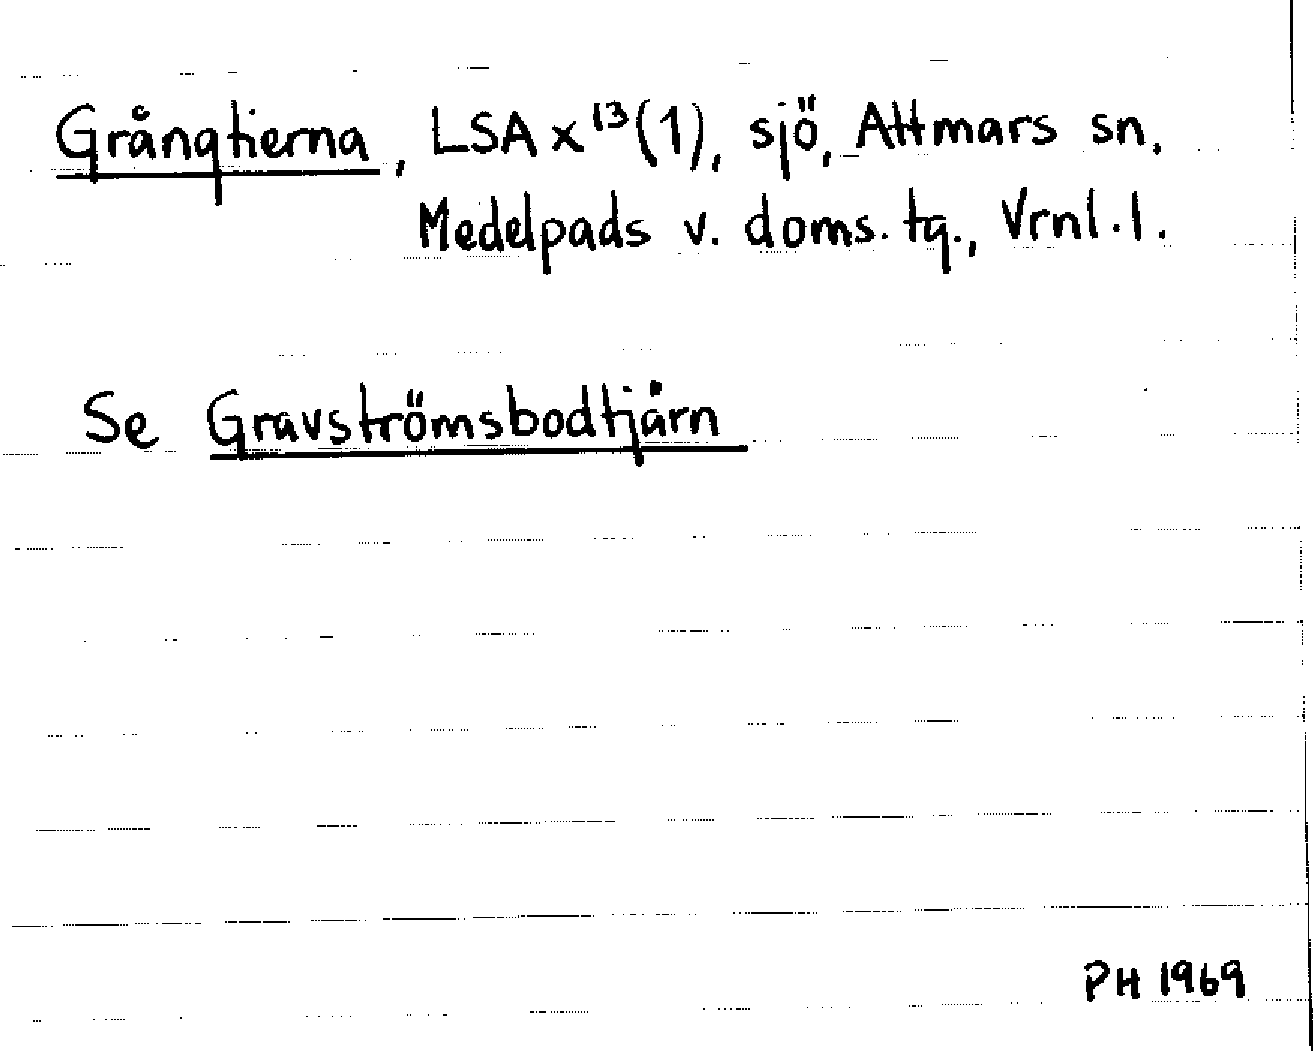 Grångtierna, LSA x¹³(1), sjö, Attmars sn.
Medelpads v. doms. tg., Vrnl. l.
Se Gravströmsbodtjärn
PH 1969